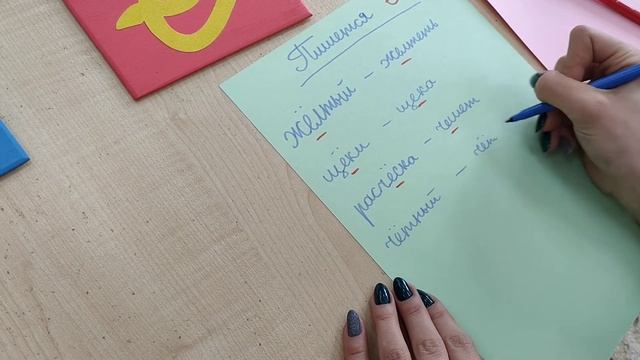 Пишется
жёлтый - желтеть
щёки - щека
расчёска - чешет
чётный - чёт